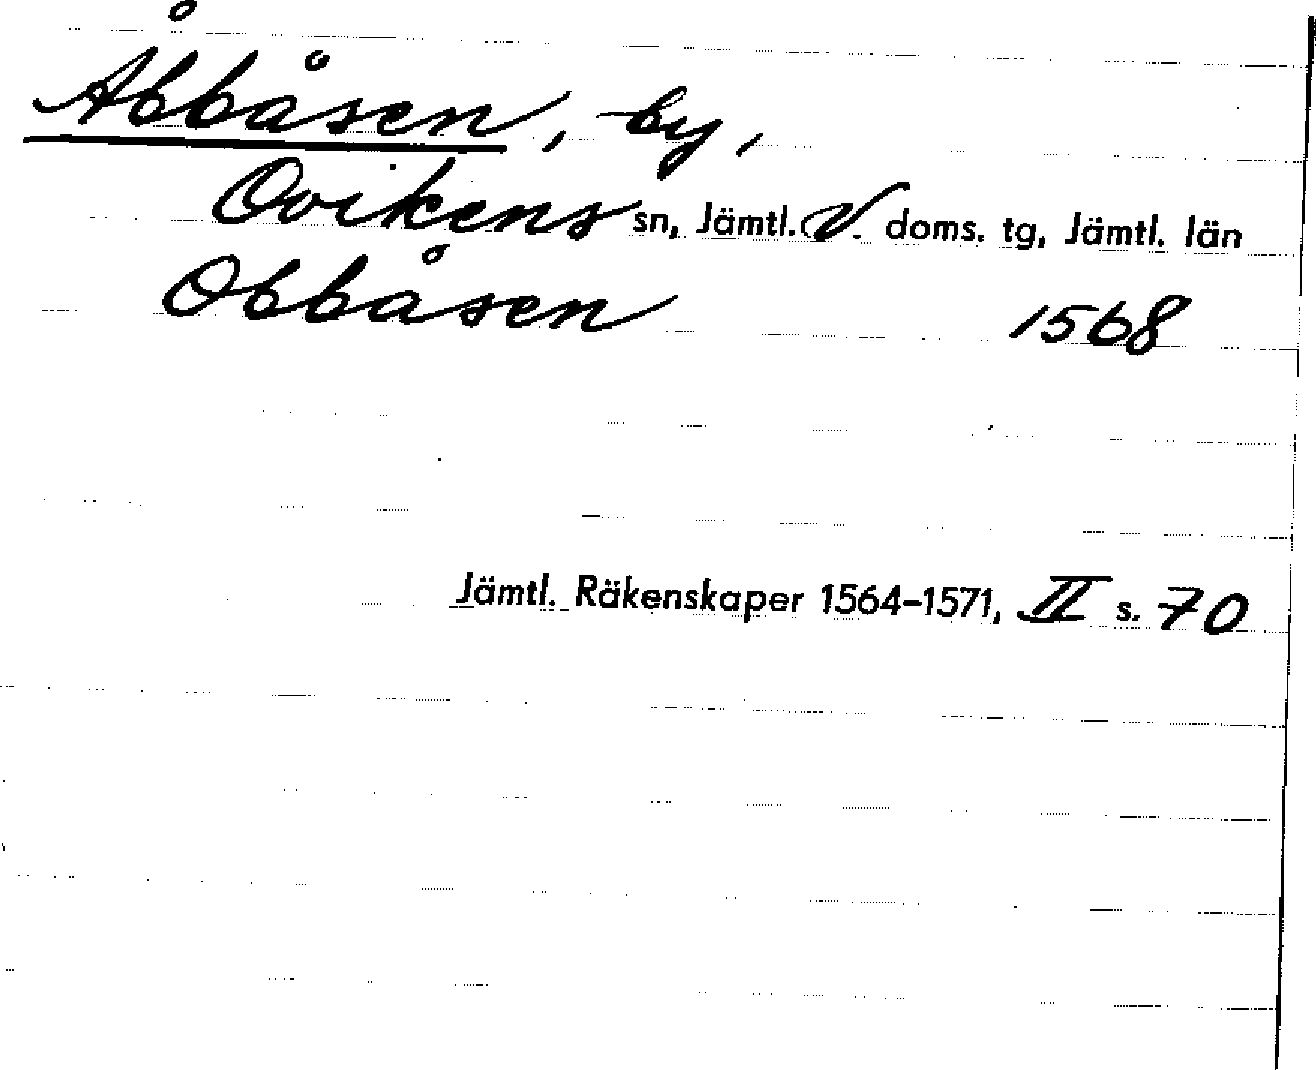 Åbbåsen, by,
Ovikens sn, Jämtl. V. doms. tg, Jämtl. län
Obbåsen 1568
Jämtl. Räkenskaper 1564-1571, II s. 70